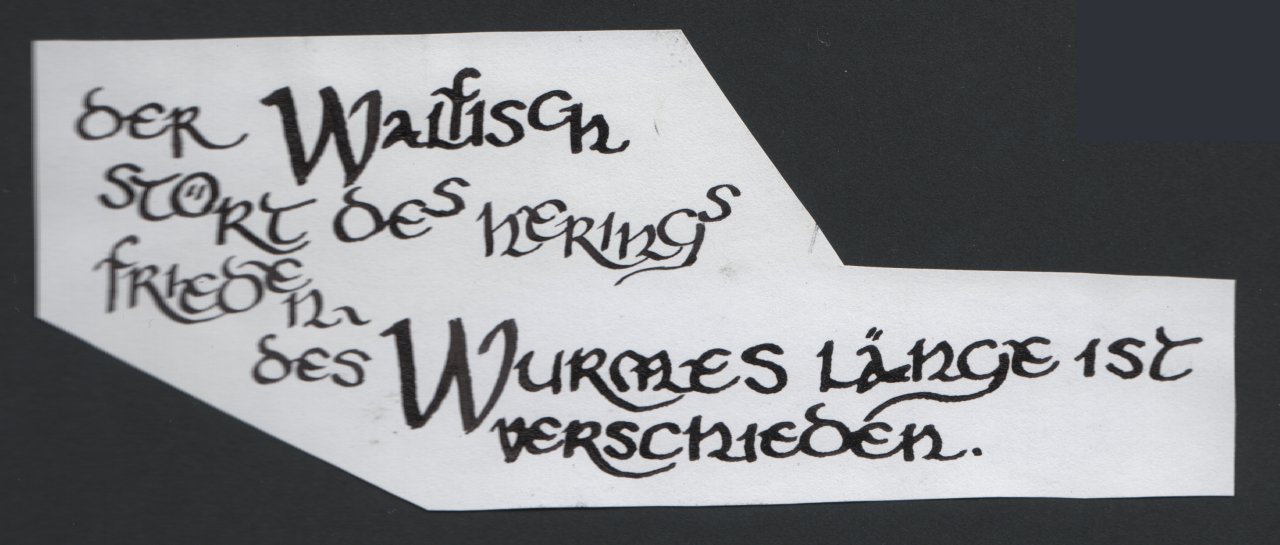 der Walfisch
stört des herings
frieden
des Wurmes länge ist
verschieden.